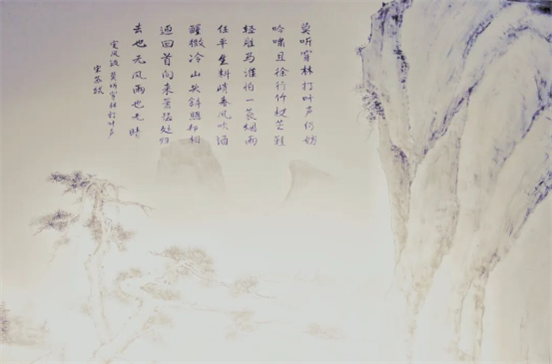 莫听穿林打叶声何妨
吟啸且徐行竹杖芒鞋
轻胜马谁怕一蓑烟雨
任平生料峭春风吹酒
醒微冷山头斜照却相
迎回首向来萧瑟处归
去也无风雨也无晴
定风波 莫听穿林打叶声
宋苏轼